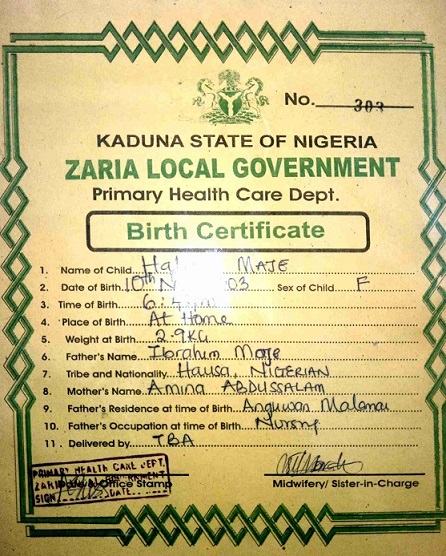 No. 303
KADUNA STATE OF NIGERIA
ZARIA LOCAL GOVERNMENT
Primary Health Care Dept.
Birth Certificate
1. Name of Child MAJE
2. Date of Birth 10th 03 Sex of Child F
3. Time of Birth
4. Place of Birth At Home
5. Weight at Birth 2.9KG
6. Father's Name Ibrahim Maje
7. Tribe and Nationality Hausa, NIGERIAN
8. Mother's Name Amina ABDUSSALAM
9. Father's Residence at time of Birth Anguwan
10. Father's Occupation at time of Birth
11. Delivered by TBA
PRIMARY HEALTH CARE DEPT.
ZARIA
SIGN DATE
Office Stamp
Midwifery/ Sister-in-Charge